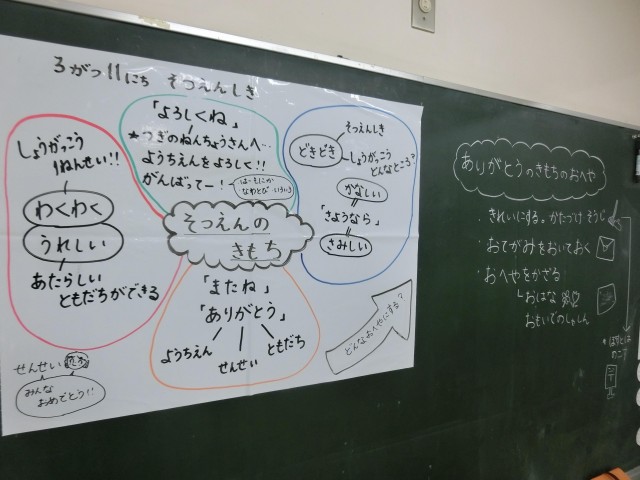 3がつ11にち そつえんしき
しょうがっこう
1ねんせい!!
わくわく
うれしい
あたらしい
ともだちができる
「よろしくね」
★つぎのねんちょうさんへ…
ようちえんをよろしく!!
がんばってー!
そつえんしき
どきどき
しょうがっこう
どんなところ?
かなしい
「さようなら」
さみしい
そつえんの
きもち
「またね」
「ありがとう」
ようちえん
せんせい
ともだち
どんなおへやにする?
せんせい
みんな
おめでとう!!
ありがとうのきもちのおへや
・きれいにする。かたづけ そうじ
・おてがみをおいておく
・おへやをかざる
おはな
おもいでのしゃしん